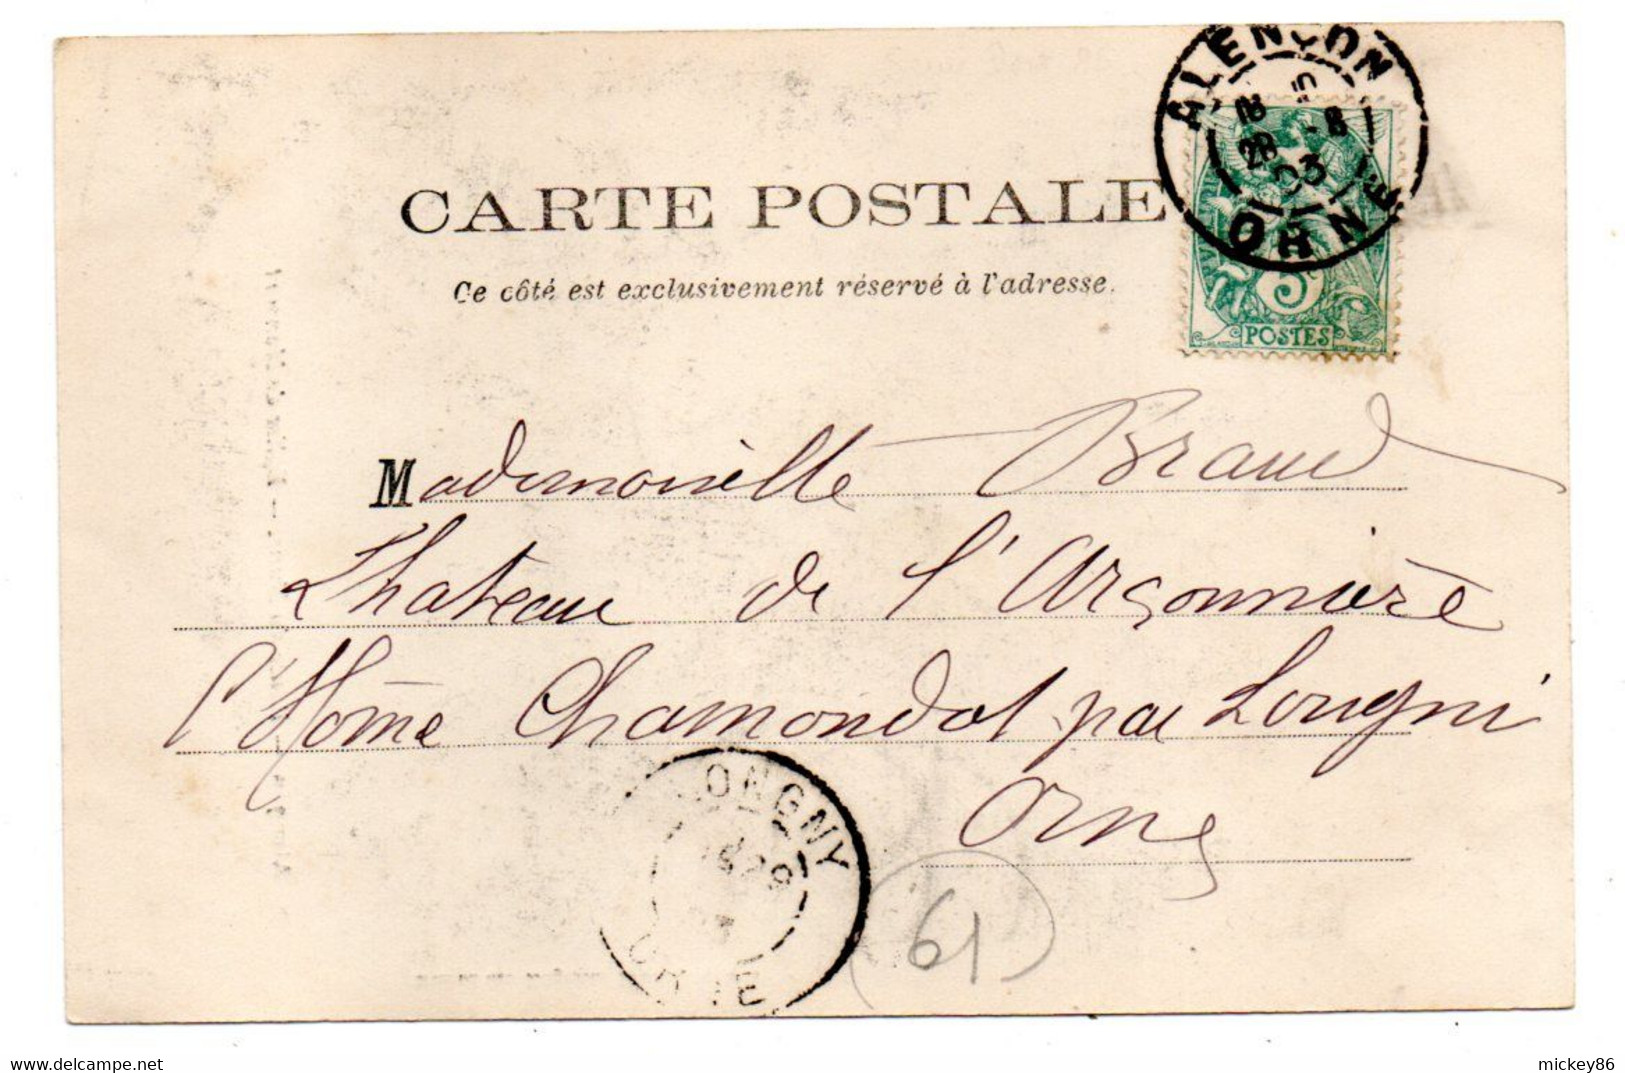 ALENÇON
18
28 -8
03
ORNE
CARTE POSTALE
Ce côté est exclusivement réservé à l'adresse.
5
POSTES
Mademoiselle Braud
Chateau de l'Arçonnière
l'Hôme Chamondot par Longni
Orne
LONGNY
ORNE
61
delcampe.net
mickey86